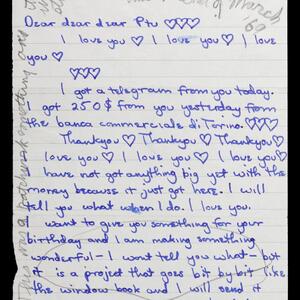 of March, '69
Dear dear dear Ptu ♡♡♡
I love you ♡ I love you ♡ I love
you ♡
♡♡♡
I got a telegram from you today.
I got 250$ from you yesterday from
the banca commerciale di Torino. ♡♡♡
Thankyou ♡ Thankyou ♡ Thankyou ♡
love you ♡ I love you ♡ I love you ♡ I
have not got anything big yet with the
money because it just got here. I will
tell you what when I do. I love you.
I want to give you something for your
birthday and I am making something
wonderful – I wont tell you what – but
it is a project that goes bit by bit like
the window book and I will send it